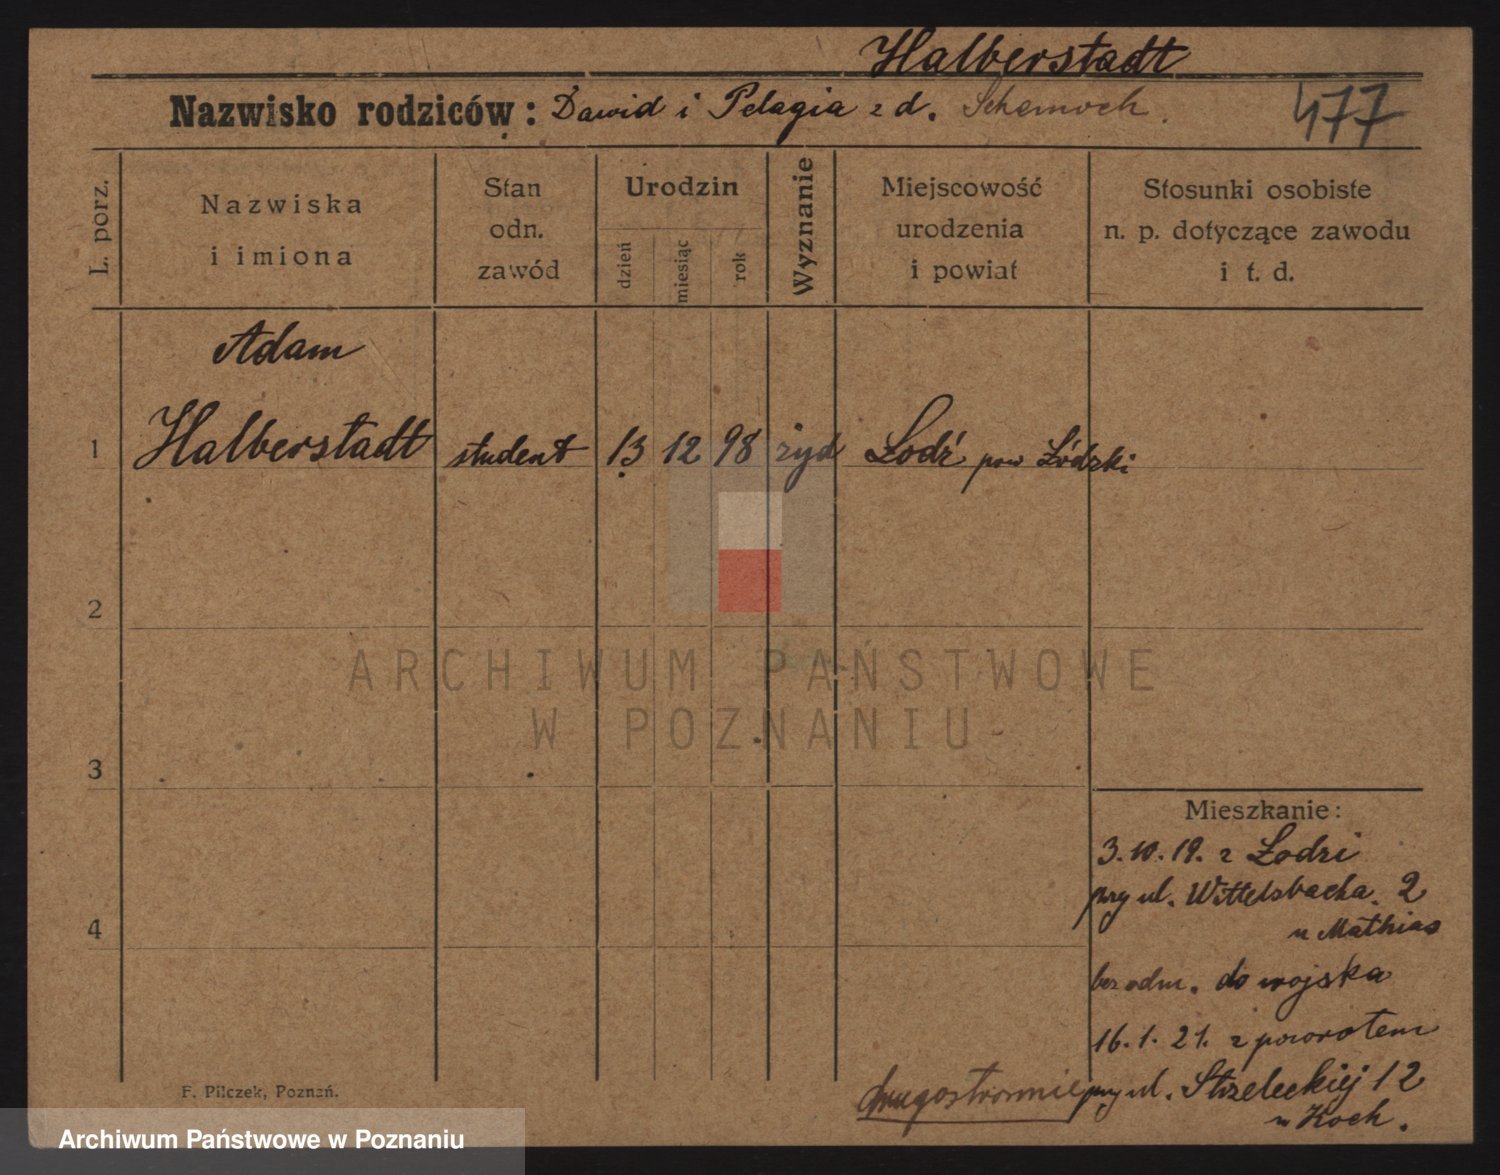 Halberstadt
Nazwisko rodziców: Dawid i Pelagia z d.
477
L. porz.
Nazwiska
i imiona
Stan
odn.
zawód
Urodzin
dzień
miesiąc
rok
Wyznanie
Miejscowość
urodzenia
i powiat
Stosunki osobiste
n. p. dotyczące zawodu
i t. d.
Adam
1 Halberstadt student 13 12 98 żyd Lodź pow Łódzki
2
ARCHIWUM PAŃSTWOWE
W POZNANIU
3
Mieszkanie:
3.10.19. z Łodzi
przy ul. Wittelsbacha. 2
4
u Mathias
bez odm. do wojska
16.1.21. z powrotem
przy ul. Strzeleckiej 12
u Koch.
drugostronnie
F. Pilczek, Poznań.
Archiwum Państwowe w Poznaniu